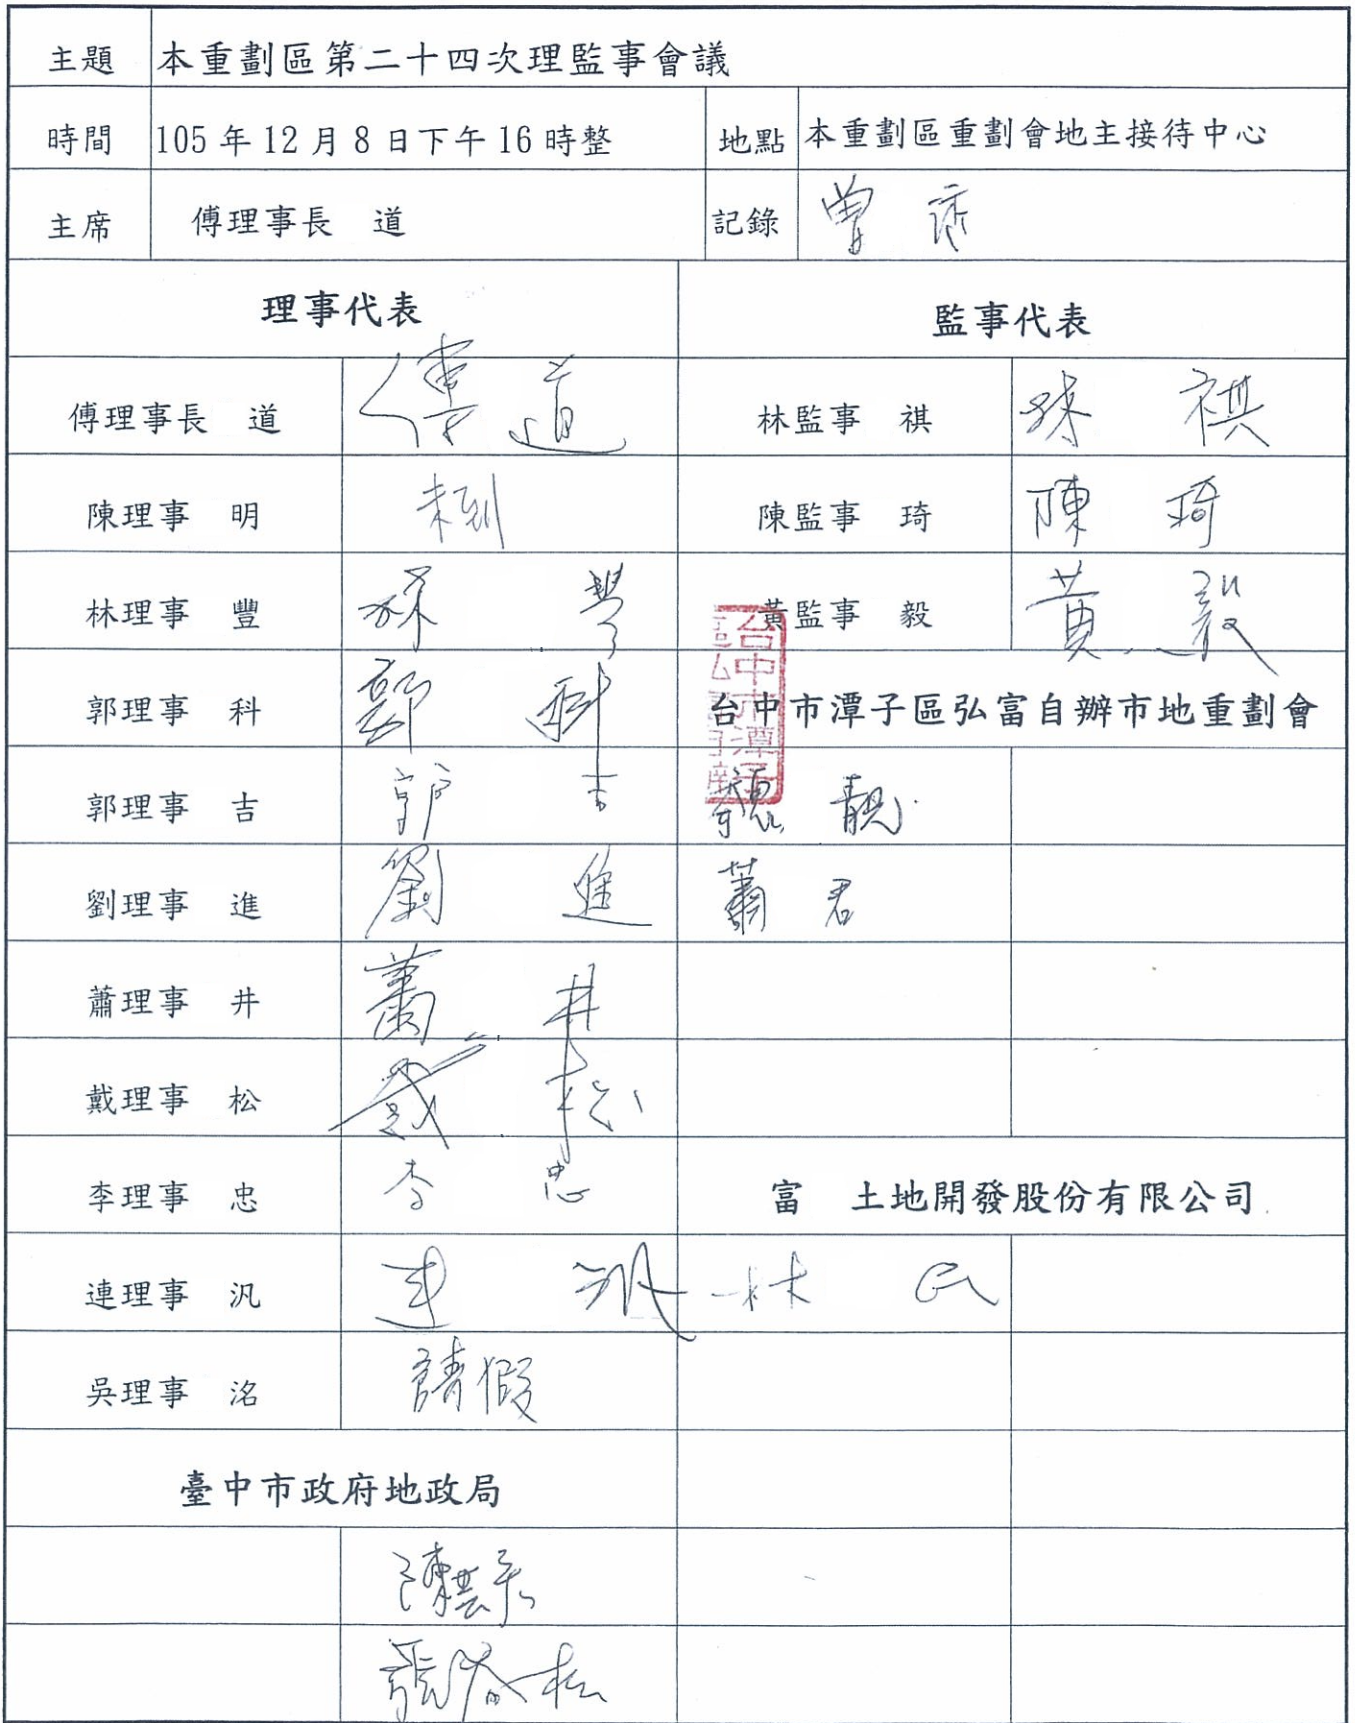 主題 本重劃區第二十四次理監事會議
時間 105年12月8日下午16時整 地點 本重劃區重劃會地主接待中心
主席 傅理事長 道 記錄 曾
理事代表 監事代表
傅理事長 道 傅 道 林監事 祺 林 祺
陳理事 明 未到 陳監事 琦 陳 琦
林理事 豐 林 豐 黃監事 毅 黃 毅
郭理事 科 郭 科 台中市潭子區弘富自辦市地重劃會
郭理事 吉 郭 吉 魏 靚
劉理事 進 劉 進 蕭 君
蕭理事 井 蕭 井
戴理事 松 戴 松
李理事 忠 李 忠 富 土地開發股份有限公司
連理事 汎 連 汎 林
吳理事 洺 請假
臺中市政府地政局
陳
張
台中市潭子